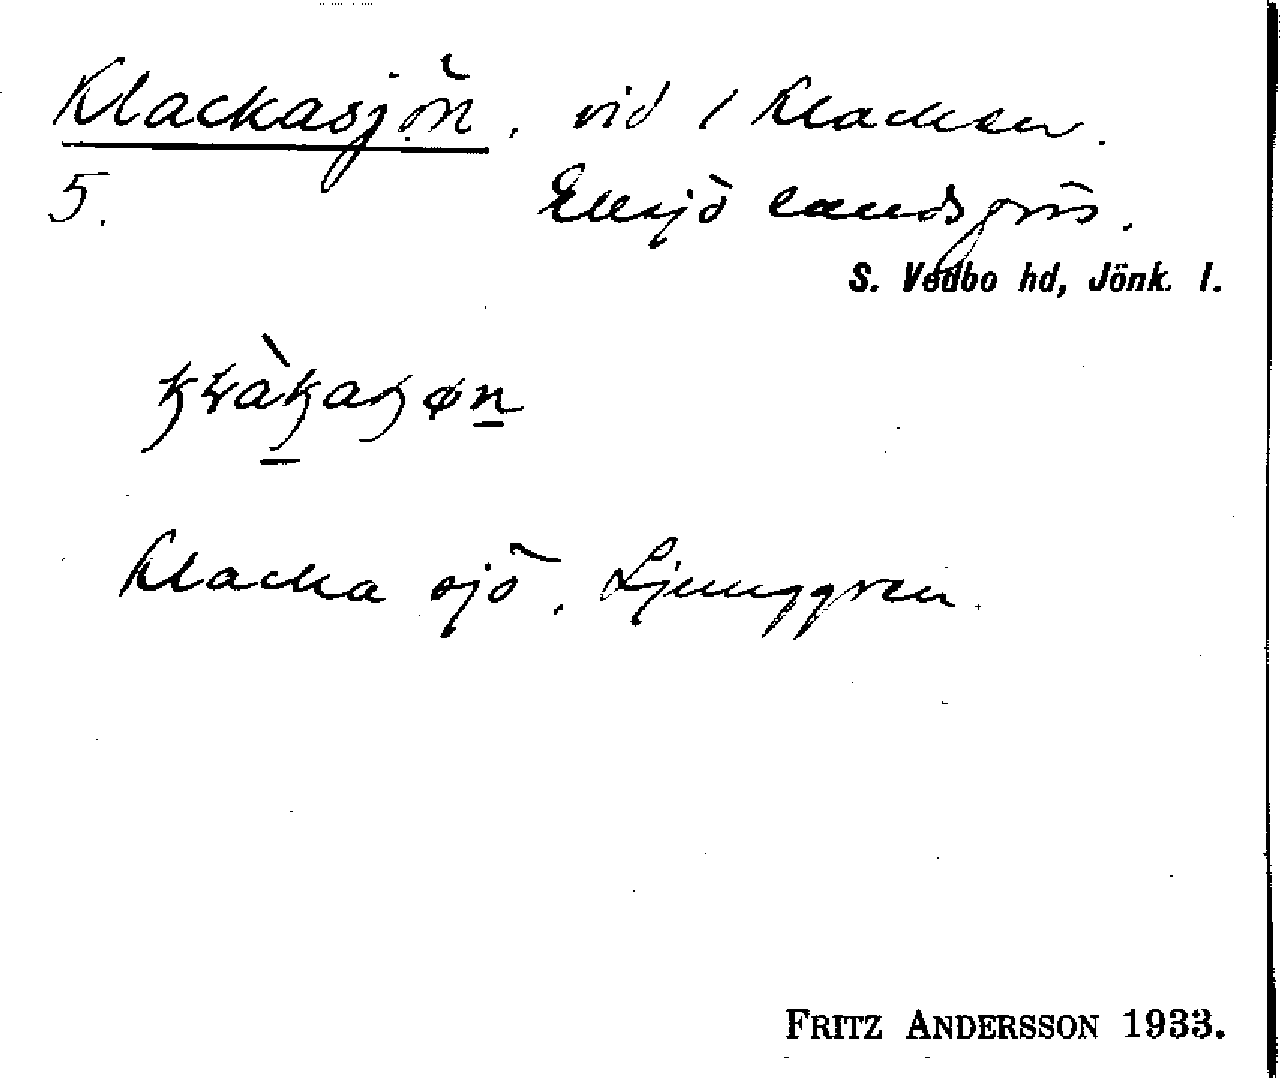 Klackasjön, vid 1 Klacksen.
5. Eksjö landsförs.
S. Vedbo hd, Jönk. l.
Klacka sjö, Ljunggren.
FRITZ ANDERSSON 1933.